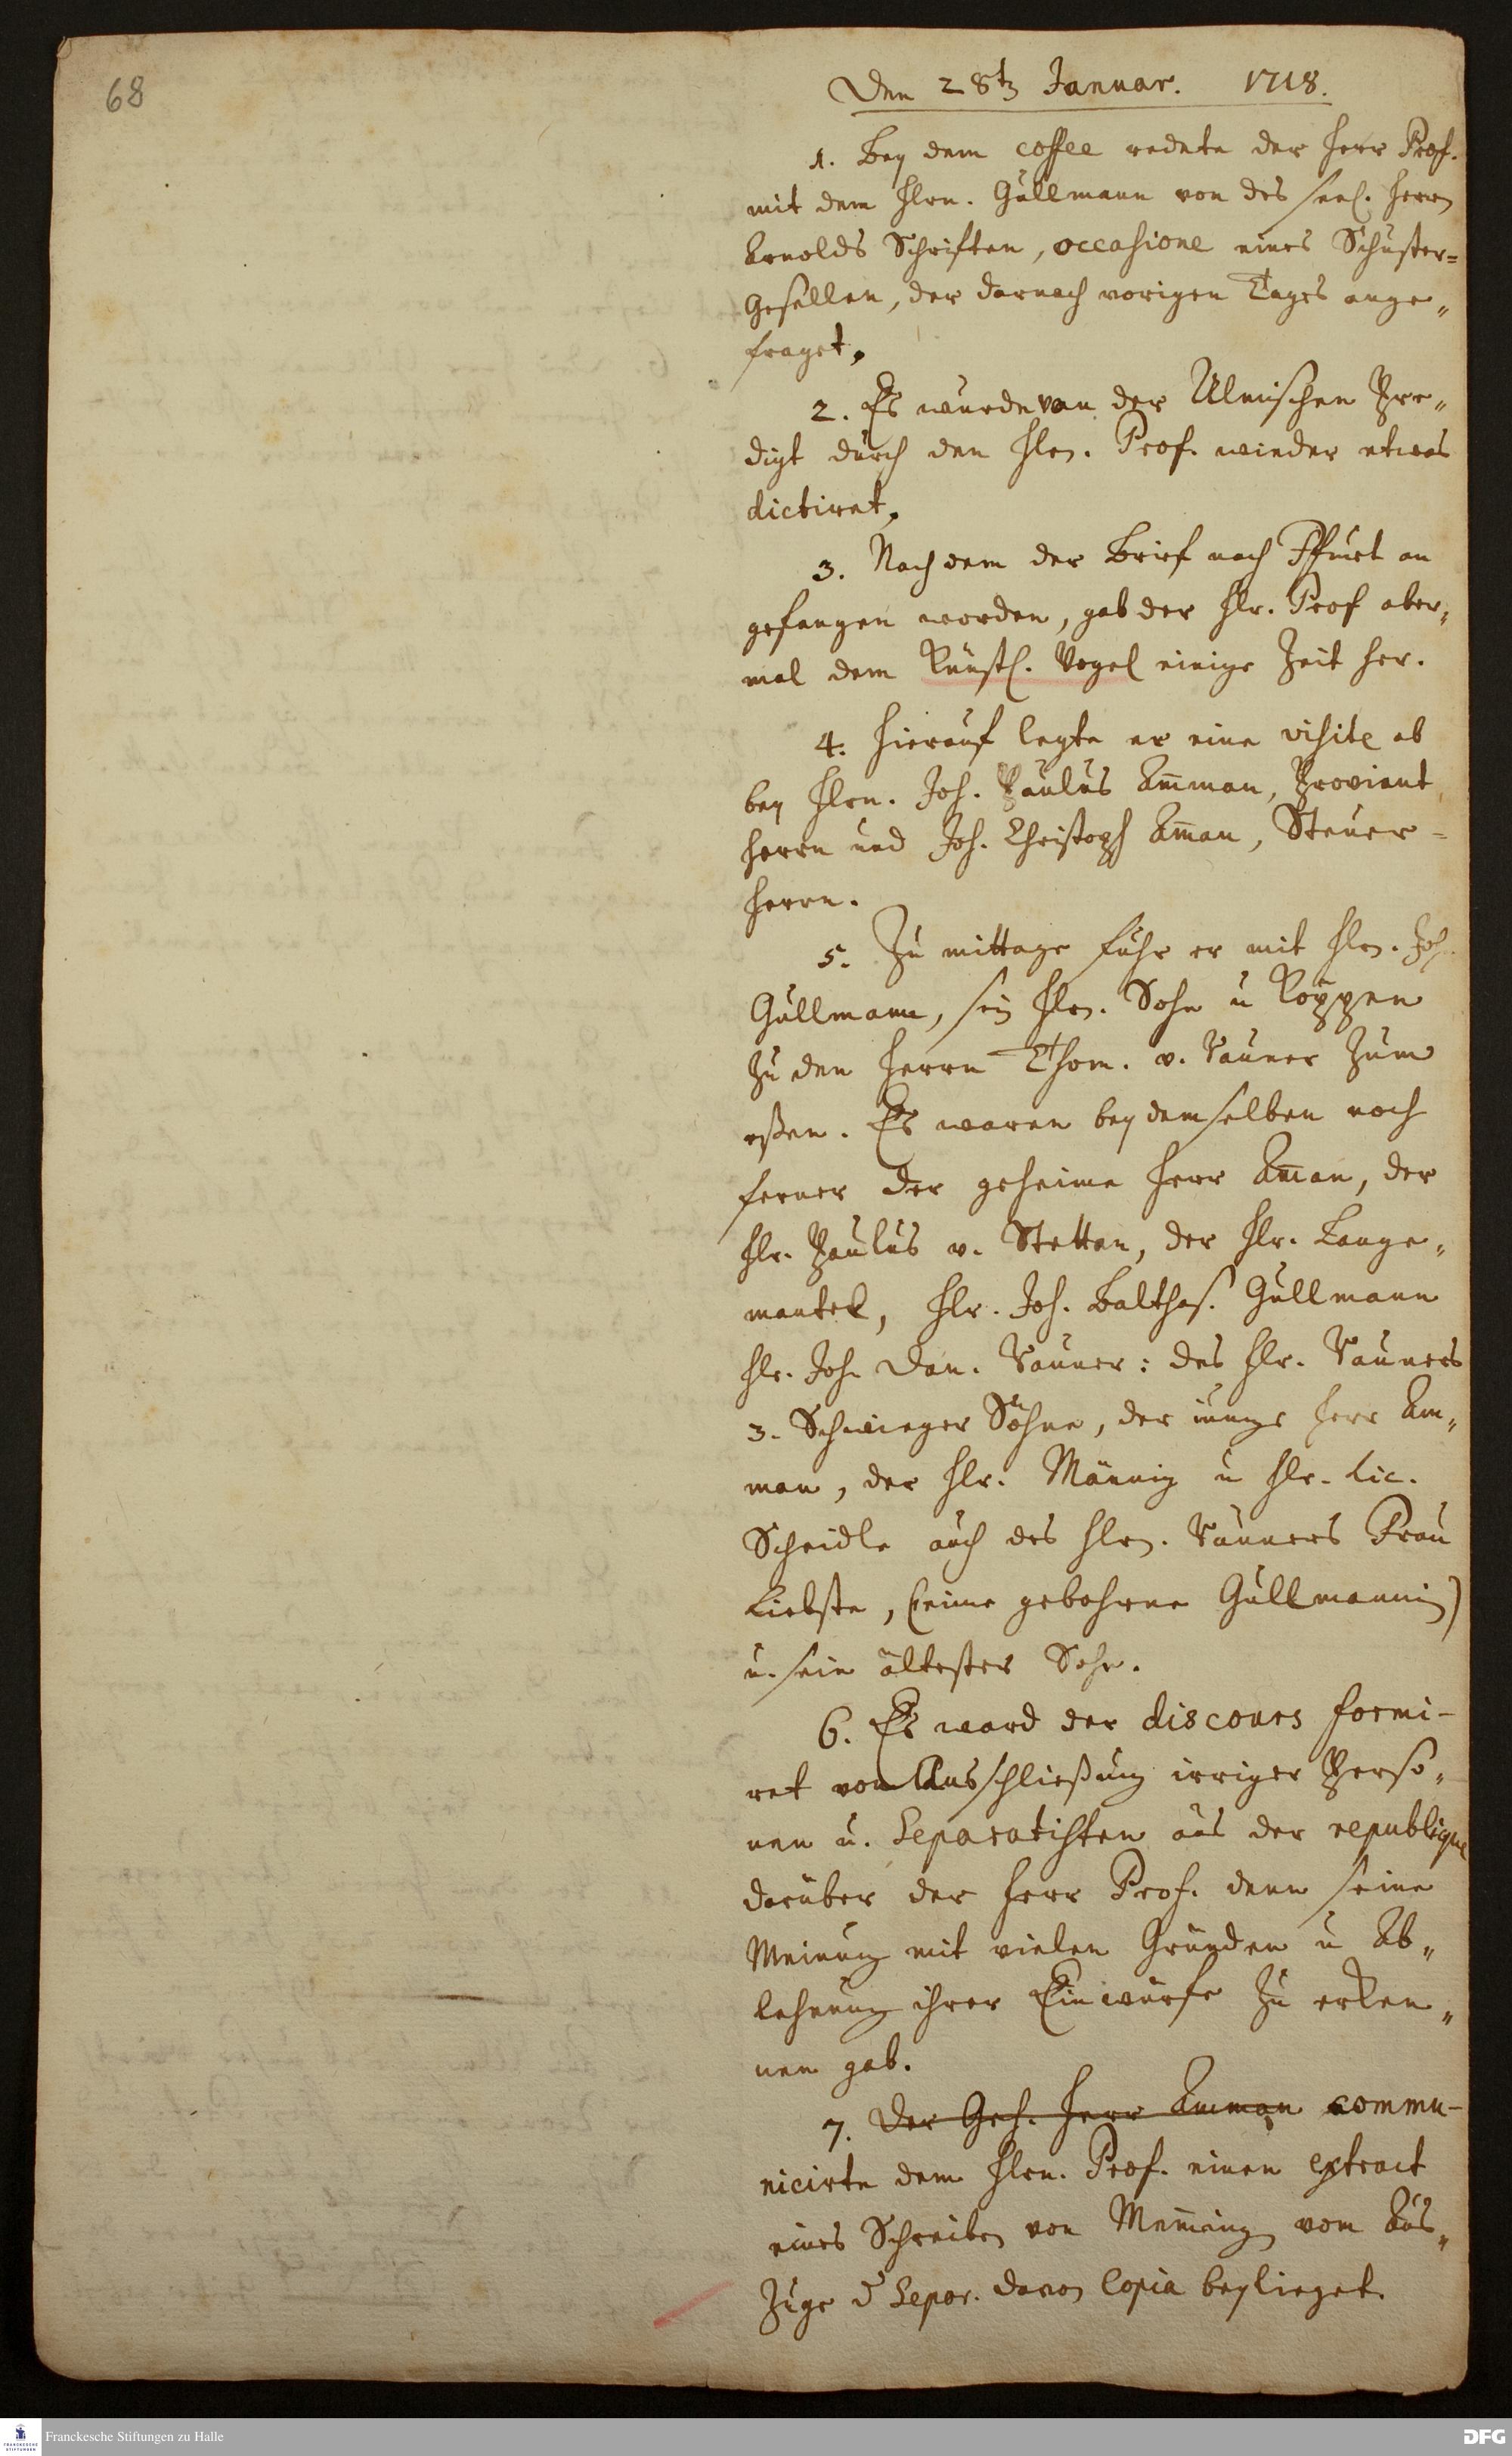 68
Den 28t. Januar. 1718.
1. Bey dem coffee redete der Herr Prof.
mit dem Hrn. Gullmann von des seel. Herrn
Arnolds Schriften, occasione eines Schuster-
Gesellen, der darnach vorigen Tages ange„
fraget.
2. Es wurde von der Ulmischen Pre„
digt durch den Hrn. Prof. wieder etwas
dictiret.
3. Nachdem der Brief nach Ffurt an
gefangen worden, gab der Hr. Prof aber„
mal dem Künstl. Vogel einige Zeit her.
4. Hierauf legte er eine visite ab
bey Hrn. Joh. Paulus Amman, Proviant
Herrn und Joh. Christoph Aman, Steuer-
Herrn.
5. Zu mittage fuhr er mit Hrn. Joh.
Gullmann, sein Hrn. Sohn u Köppen
zu den Herrn Thom. v. Rauner zum
eßen. Es waren bey demselben noch
ferner der geheime Herr Aman, der
Hr. Paulus v. Stetten, der Hr. Lange„
mantel, Hr. Joh. Balthas. Gullmann
Hr. Joh. Dan. Rauner: des Hr. Rauners
3. Schwieger Söhne, der junge Herr Am„
man, der Hr. Männig u Hr. Lic.
Scheidle auch des Hrn. Rauners Frau
Liebste, (eine gebohrne Gullmannin)
u. sein ältester Sohn.
6. Es ward der discours formi-
ret von Ausschließung irriger Perso„
nen u. Separatisten aus der republique
darüber der Herr Prof. denn seine
Meinung mit vielen Gründen u Ab„
lehnung ihrer Einwürfe zu erken„
nen gab.
7. Der Geh. Herr Amman commu-
nicirte dem Hrn. Prof. einen extract
eines Schreiben von Memming vom Aus„
zuge d Separ. davon Copia beylieget.
Franckesche Stiftungen zu Halle
FRANCKESCHE
STIFTUNGEN
DFG